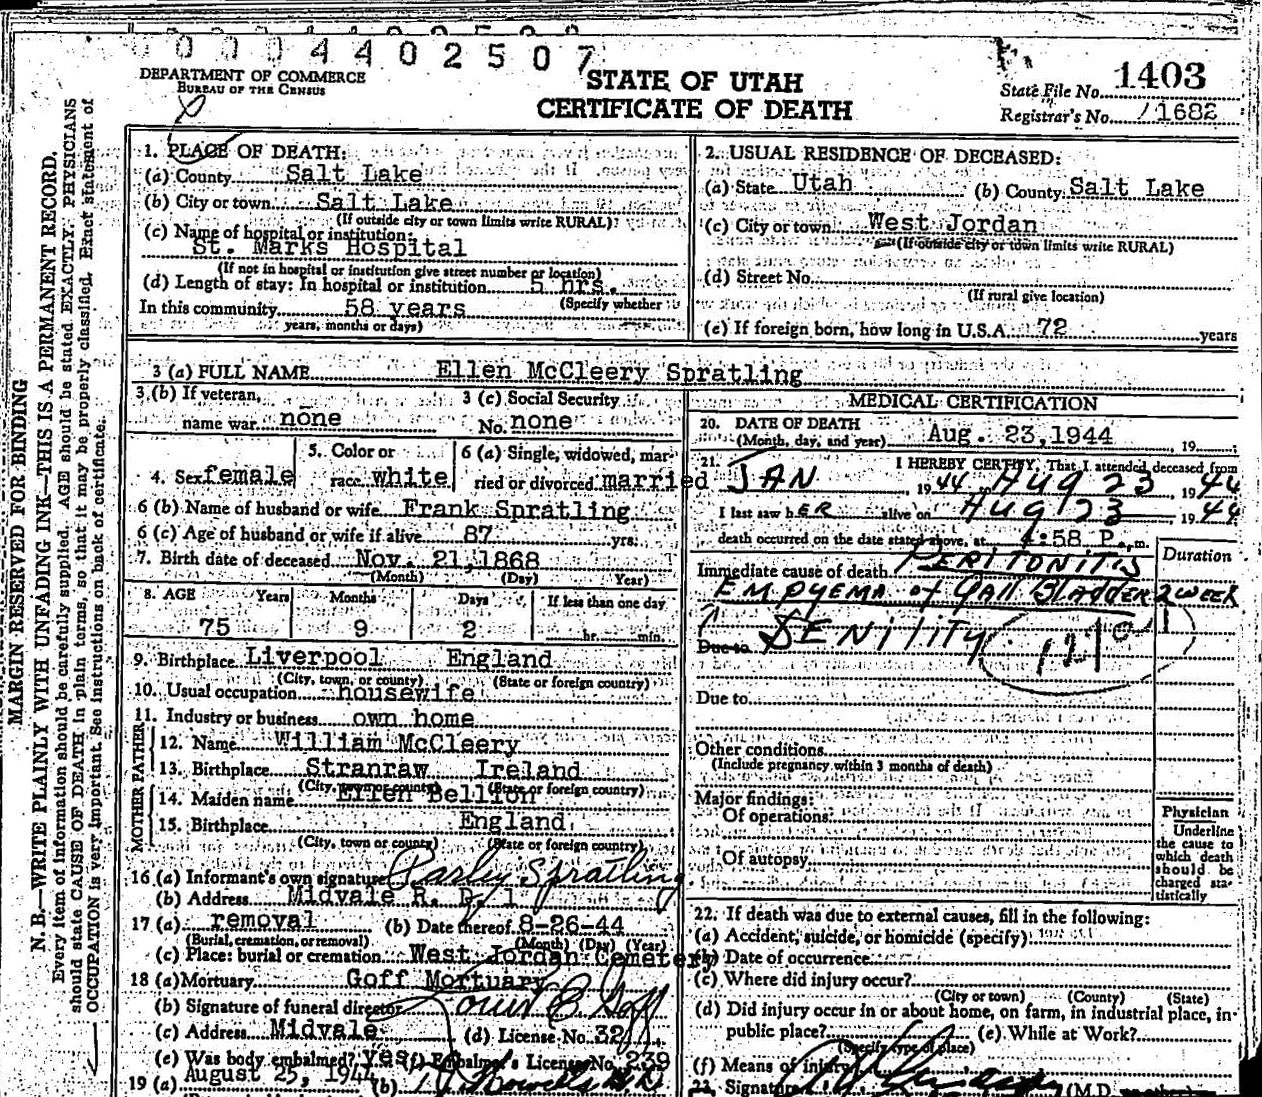 0004402507
DEPARTMENT OF COMMERCE
BUREAU OF THE CENSUS
STATE OF UTAH
CERTIFICATE OF DEATH
State File No. 1403
Registrar's No. 1682
MARGIN RESERVED FOR BINDING
N. B.—WRITE PLAINLY WITH UNFADING INK—THIS IS A PERMANENT RECORD.
Every item of information should be carefully supplied. AGE should be stated EXACTLY. PHYSICIANS
should state CAUSE OF DEATH in plain terms, so that it may be properly classified. Exact statement of
OCCUPATION is very important. See instructions on back of certificate.
1. PLACE OF DEATH:
(a) County Salt Lake
(b) City or town Salt Lake
(If outside city or town limits write RURAL)
(c) Name of hospital or institution:
St. Marks Hospital
(If not in hospital or institution give street number or location)
(d) Length of stay: In hospital or institution 5 hrs.
(Specify whether
In this community 58 years
years, months or days)
2. USUAL RESIDENCE OF DECEASED:
(a) State Utah (b) County Salt Lake
(c) City or town West Jordan
(If outside city or town limits write RURAL)
(d) Street No.
(If rural give location)
(e) If foreign born, how long in U.S.A. 72 years
3 (a) FULL NAME Ellen McCleery Spratling
3 (b) If veteran, name war none
3 (c) Social Security No. none
4. Sex female
5. Color or race white
6 (a) Single, widowed, married or divorced married
6 (b) Name of husband or wife Frank Spratling
6 (c) Age of husband or wife if alive 87 yrs.
7. Birth date of deceased Nov. 21,1868
(Month) (Day) Year)
8. AGE Years Months Days If less than one day
75 9 2 hr. min.
9. Birthplace Liverpool England
(City, town, or county) (State or foreign country)
10. Usual occupation housewife
11. Industry or business own home
FATHER
12. Name William McCleery
13. Birthplace Stranraw Ireland
(City, town or county) (State or foreign country)
MOTHER
14. Maiden name Ellen Bellion
15. Birthplace England
(City, town or county) (State or foreign country)
16 (a) Informant's own signature Parley Spratling
(b) Address Midvale R. D. 1
17 (a) removal (b) Date thereof 8-26-44
(Burial, cremation, or removal) (Month) (Day) (Year)
(c) Place: burial or cremation West Jordan Cemetery
18 (a) Mortuary Goff Mortuary
(b) Signature of funeral director
(c) Address Midvale (d) License No. 32
(e) Was body embalmed? yes (f) Embalmer's License No. 239
19 (a) August 25, 1944 (b)
MEDICAL CERTIFICATION
20. DATE OF DEATH
(Month, day, and year) Aug. 23,1944 19
21. I HEREBY CERTIFY, That I attended deceased from
JAN 1944 Aug 23 1944
I last saw hER alive on Aug 23 1944
death occurred on the date stated above, at :58 P. m.
Duration
Immediate cause of death PERITONITIS
EMPYEMA of Gall Bladder 2 WEEK
Due to SENILITY
Due to
Other conditions
(Include pregnancy within 3 months of death)
Major findings:
Of operations:
Of autopsy
Physician
Underline
the cause to
which death
should be
charged sta-
tistically
22. If death was due to external causes, fill in the following:
(a) Accident, suicide, or homicide (specify):
(b) Date of occurrence
(c) Where did injury occur?
(City or town) (County) (State)
(d) Did injury occur in or about home, on farm, in industrial place, in
public place? (e) While at Work?
(Specify type of place)
(f) Means of injury
23. Signature (M.D.